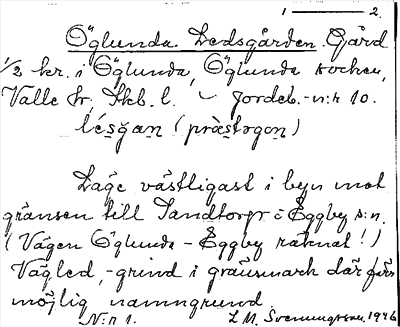 1 — 2.
Öglunda Ledsgården. Gård
1/2 kr. i Öglunda, Öglunda socken,
Valle hr, Skb. l. – Jordeb.-n:r 10.
lésgan (præstogon)
Läge västligast i byn mot
gränsen till Sandtorp i Eggby s:n.
(Vägen Öglunda – Eggby räknat!)
Vägled, -grind i gränsmark där förr
möjlig namngrund.
N:r 1. L. M. Svenungsson 1946